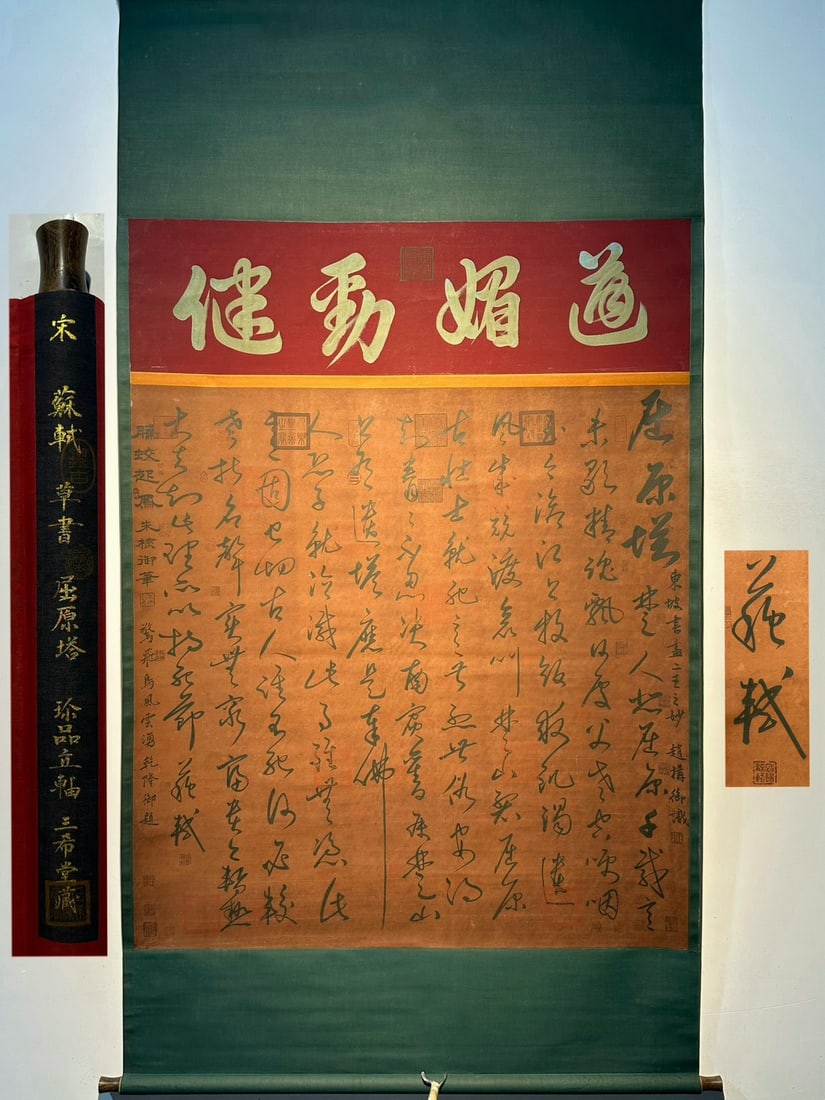 遒媚勁健
屈原塔 楚人悲屈原千載意
東坡書盡二王之妙 趙構御識
未歇精魂飄何處父老空哽咽
至今滄江上投飯救飢渴遺
風成競渡哀叫楚山裂屈原
古壯士就死意甚烈世俗安得
知眷々不忍決南賓舊屬楚山
上有遺塔應是奉佛
人恐子就淪滅此事雖無憑此
意固已切古人誰不死何必較
考折名聲實無窮富貴亦暫熱
大夫知此理所以持死節 蘇軾
騰蛟起鳳 朱棣御筆
驚飛鳥風雲湧 乾隆御題
宋 蘇軾 草書 屈原塔 珍品立軸 三希堂藏
蘇軾